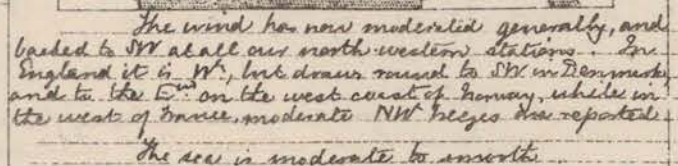 The wind has now moderated generally, and
backed to SW at all our north-western stations. In
England it is Wˡʸ, but draws round to SW in Denmark,
and to the Eʷᵈ on the west coast of Norway, while in
the west of France, moderate NWˡʸ breezes are reported.
The sea is moderate to smooth.